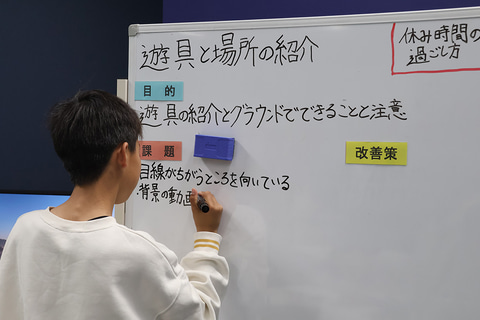 遊具と場所の紹介
休み時間の
過ごし方
目的
遊具の紹介とグラウンドでできることと注意
課題
改善策
目線がちがうところを向いている
背景の動画